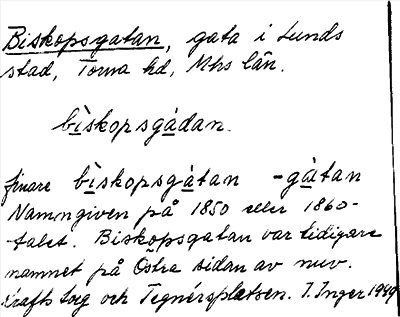 Biskopsgatan, gata i Lunds
stad, Torna hd, Mhs län.
bìskopsgàdan.
finare bìskopsgàtan -gàtan
Namngiven på 1850 eller 1860-
talet. Biskopsgatan var tidigare
namnet på Östra sidan av nuv.
Krafts torg och Tegnérsplatsen. I. Ingers 1949